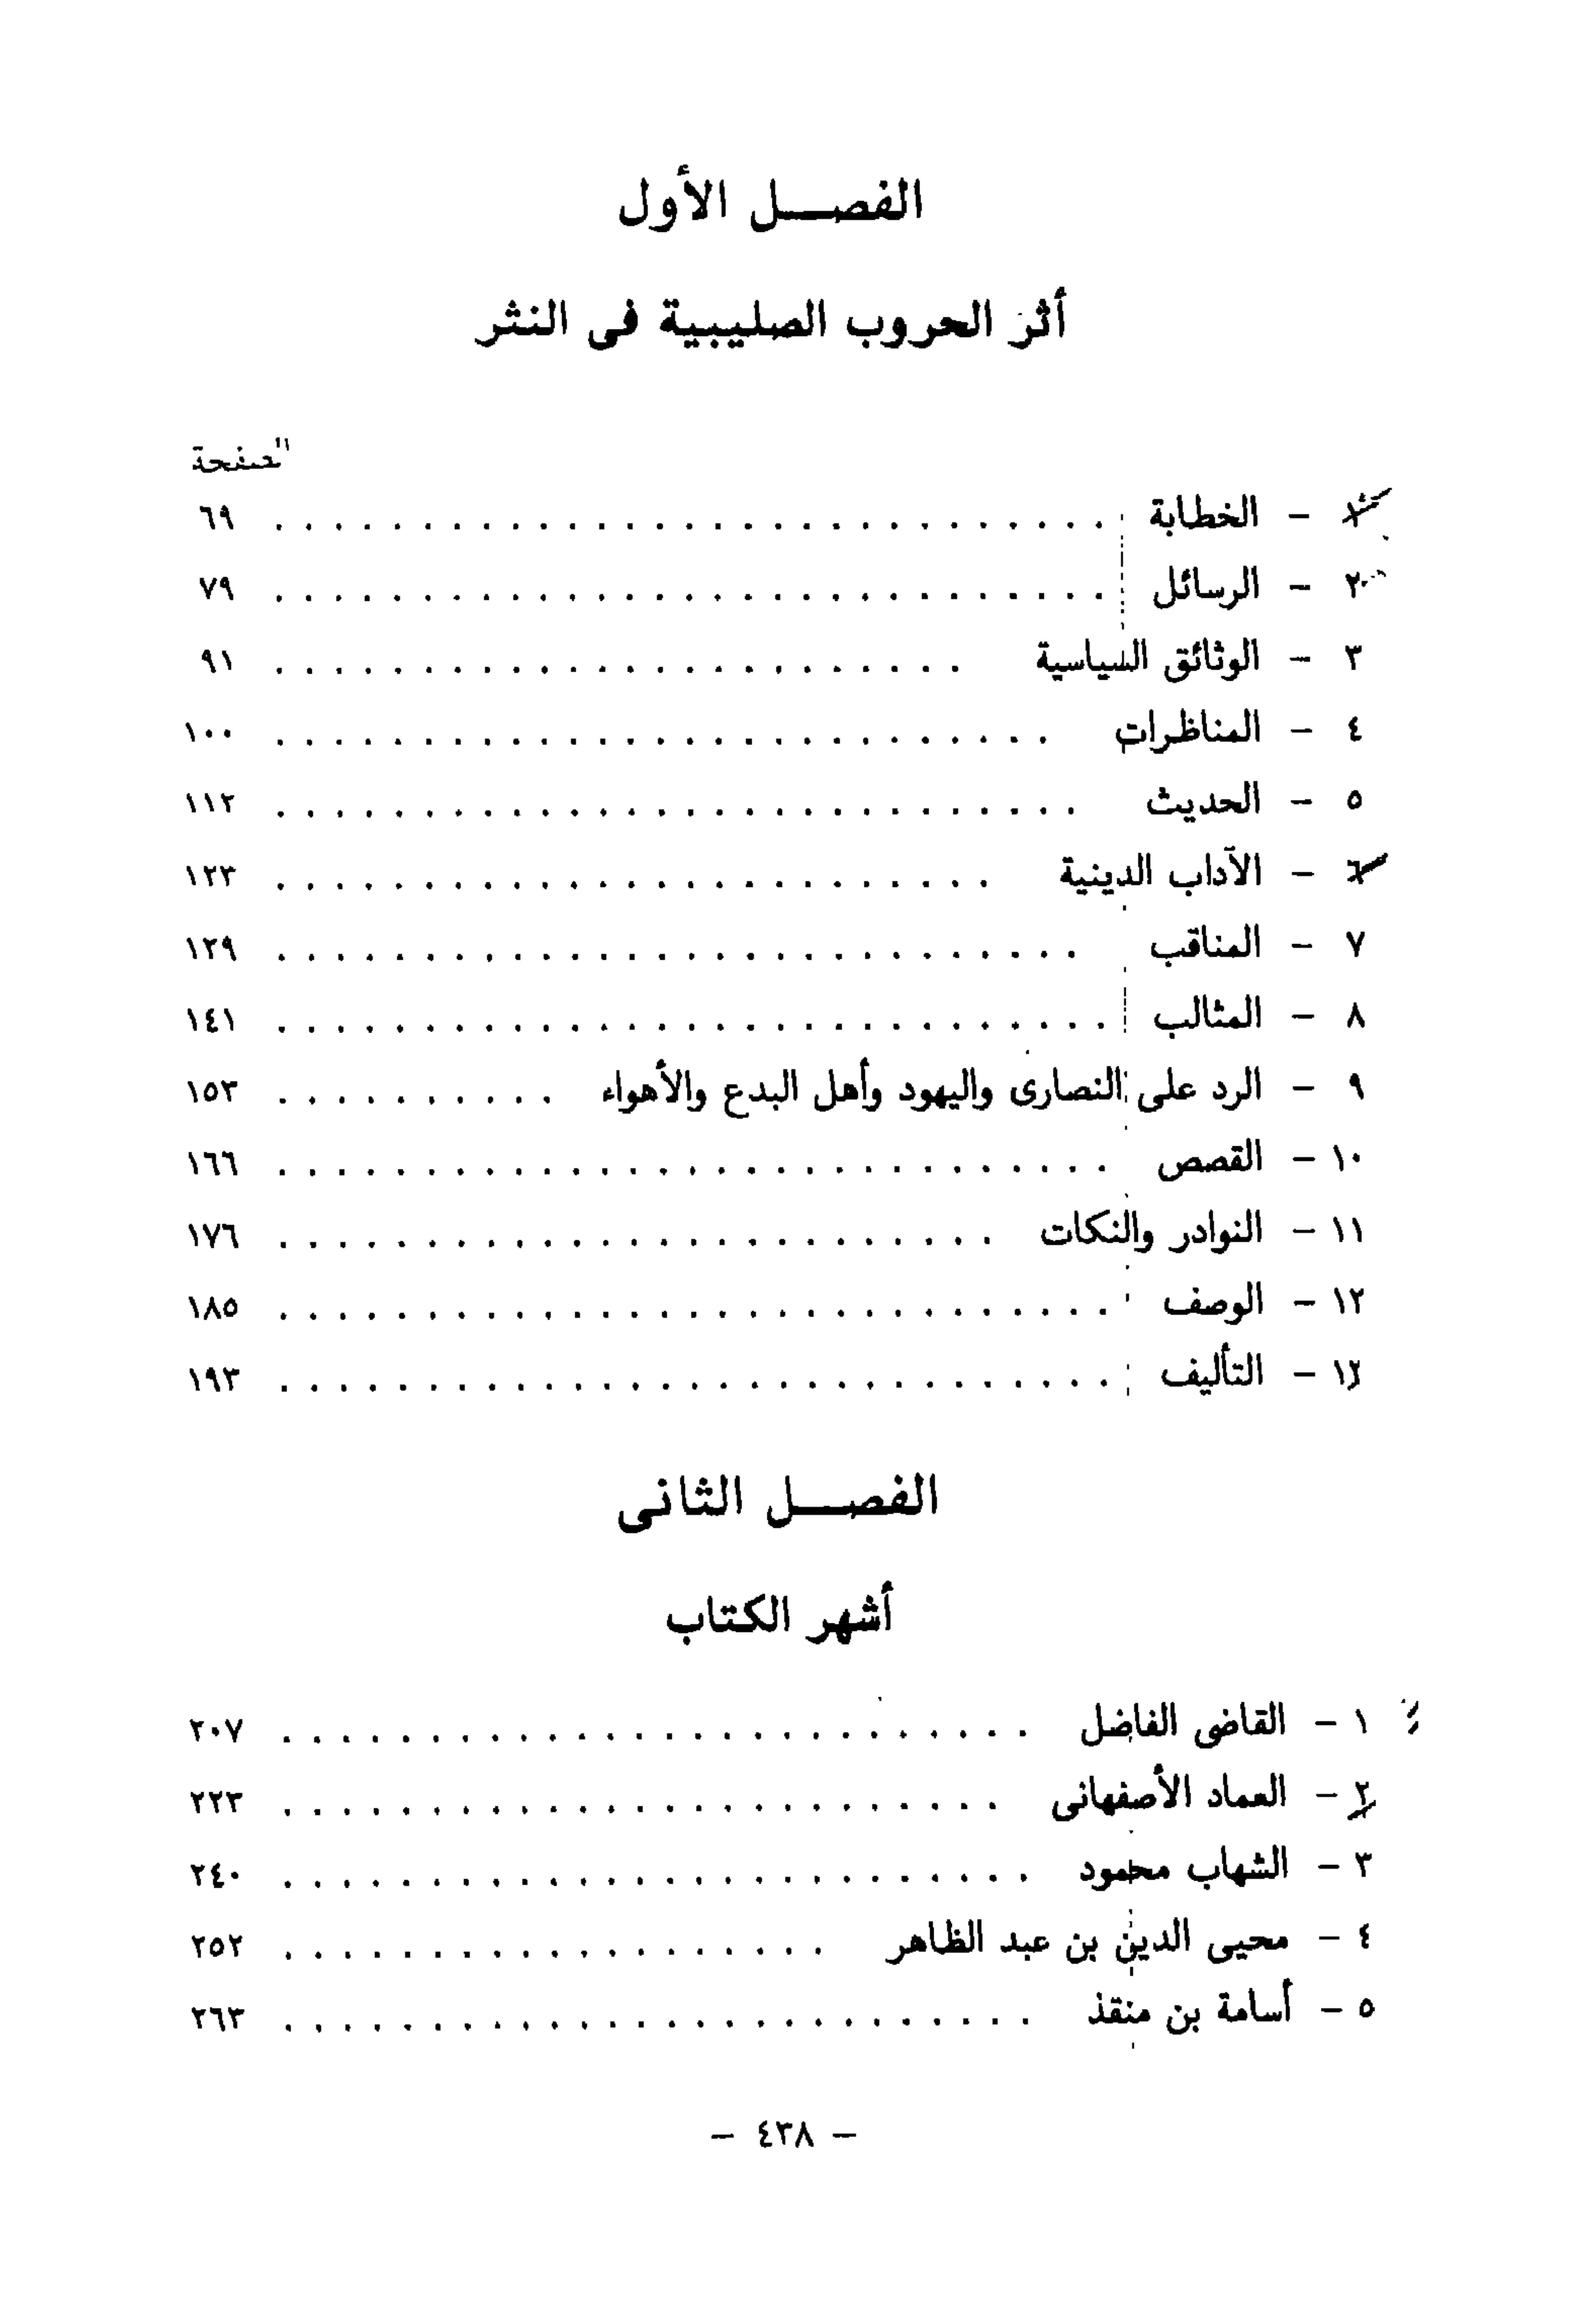 الفصل الأول
أثر الحروب الصليبية فى النثر
الصفحة
١ - الخطابة . . . . . . . . . . . . . . . . . . . . . . . . . . . . . ٦٩
٢ - الرسائل . . . . . . . . . . . . . . . . . . . . . . . . . . . . . ٧٩
٣ - الوثائق السياسية . . . . . . . . . . . . . . . . . . . . . . . . ٩١
٤ - المناظرات . . . . . . . . . . . . . . . . . . . . . . . . . . . ١٠٠
٥ - الحديث . . . . . . . . . . . . . . . . . . . . . . . . . . . . ١١٢
٦ - الآداب الدينية . . . . . . . . . . . . . . . . . . . . . . . . . ١٢٣
٧ - المناقب . . . . . . . . . . . . . . . . . . . . . . . . . . . . ١٢٩
٨ - المثالب . . . . . . . . . . . . . . . . . . . . . . . . . . . . . ١٤١
٩ - الرد على النصارى واليهود وأهل البدع والأهواء . . . . . . . . . . ١٥٣
١٠ - القصص . . . . . . . . . . . . . . . . . . . . . . . . . . . . . ١٦٦
١١ - النوادر والنكات . . . . . . . . . . . . . . . . . . . . . . . . . ١٧٦
١٢ - الوصف . . . . . . . . . . . . . . . . . . . . . . . . . . . . . ١٨٥
١٣ - التأليف . . . . . . . . . . . . . . . . . . . . . . . . . . . . . ١٩٣
الفصل الثانى
أشهر الكتاب
١ - القاضى الفاضل . . . . . . . . . . . . . . . . . . . . . . . . . . ٢٠٧
٢ - العماد الأصفهانى . . . . . . . . . . . . . . . . . . . . . . . . . ٢٢٣
٣ - الشهاب محمود . . . . . . . . . . . . . . . . . . . . . . . . . . ٢٤٠
٤ - محيى الدين بن عبد الظاهر . . . . . . . . . . . . . . . . . . . ٢٥٢
٥ - أسامة بن منقذ . . . . . . . . . . . . . . . . . . . . . . . . . . ٢٦٣
- ٤٣٨ -